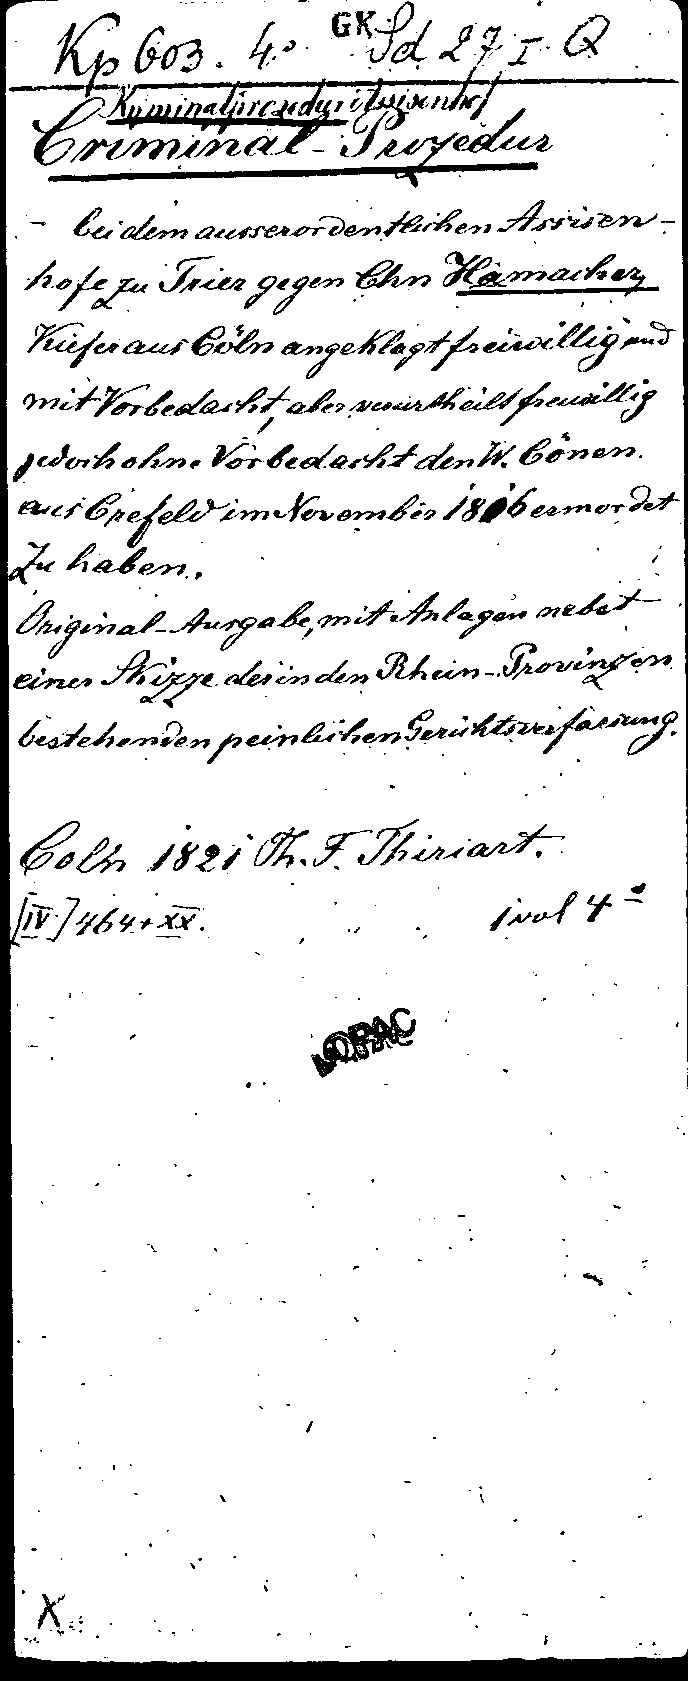 Kp 603. 4° GK Sd 27 I Q
Kriminalprozedur Assisenhof
Criminal-Prozedur
- bei dem ausserordentlichen Assisen-
hofe zu Trier gegen Chn Hamacher,
Küfer aus Cöln angeklagt freiwillig und
mit Vorbedacht, aber verurtheilt freiwillig
jedoch ohne Vorbedacht den W. Cönen
aus Crefeld im November 1816 ermordet
zu haben.
Original-Ausgabe, mit Anlagen nebst
einer Skizze der in den Rhein-Provinzen
bestehenden peinlichen Gerichtsverfassung.
Coln 1821 Th. F. Thiriart.
[IV] 464 + XX. 1 vol 4°
OPAC
X